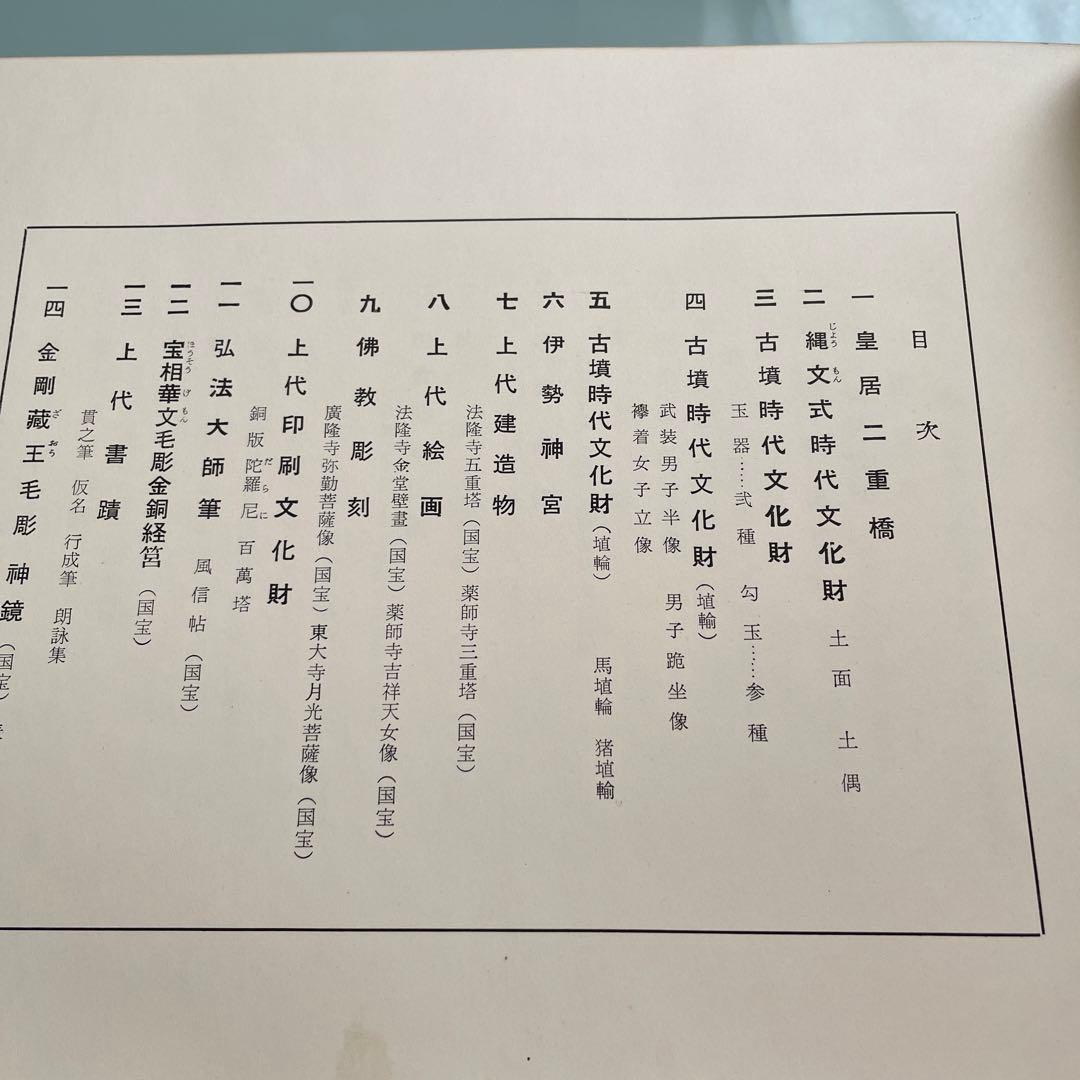 目次
一 皇居二重橋
二 縄文式時代文化財 土面 土偶
じょう もん
三 古墳時代文化財
玉器……弐種 勾玉……参種
四 古墳時代文化財（埴輪）
武装男子半像 男子跪坐像
襷着女子立像
五 古墳時代文化財（埴輪） 馬埴輪 猪埴輪
六 伊勢神宮
七 上代建造物
法隆寺五重塔（国宝）薬師寺三重塔（国宝）
八 上代絵画
法隆寺金堂壁畫（国宝）薬師寺吉祥天女像（国宝）
九 佛教彫刻
廣隆寺弥勤菩薩像（国宝）東大寺月光菩薩像（国宝）
一〇 上代印刷文化財
銅版陀羅尼 百萬塔
だらに
一一 弘法大師筆 風信帖（国宝）
一二 宝相華文毛彫金銅経筥（国宝）
ほうそう げ もん
一三 上代書蹟
貫之筆 仮名 行成筆 朗詠集
一四 金剛藏王毛彫神鏡（国宝）
ざ おう